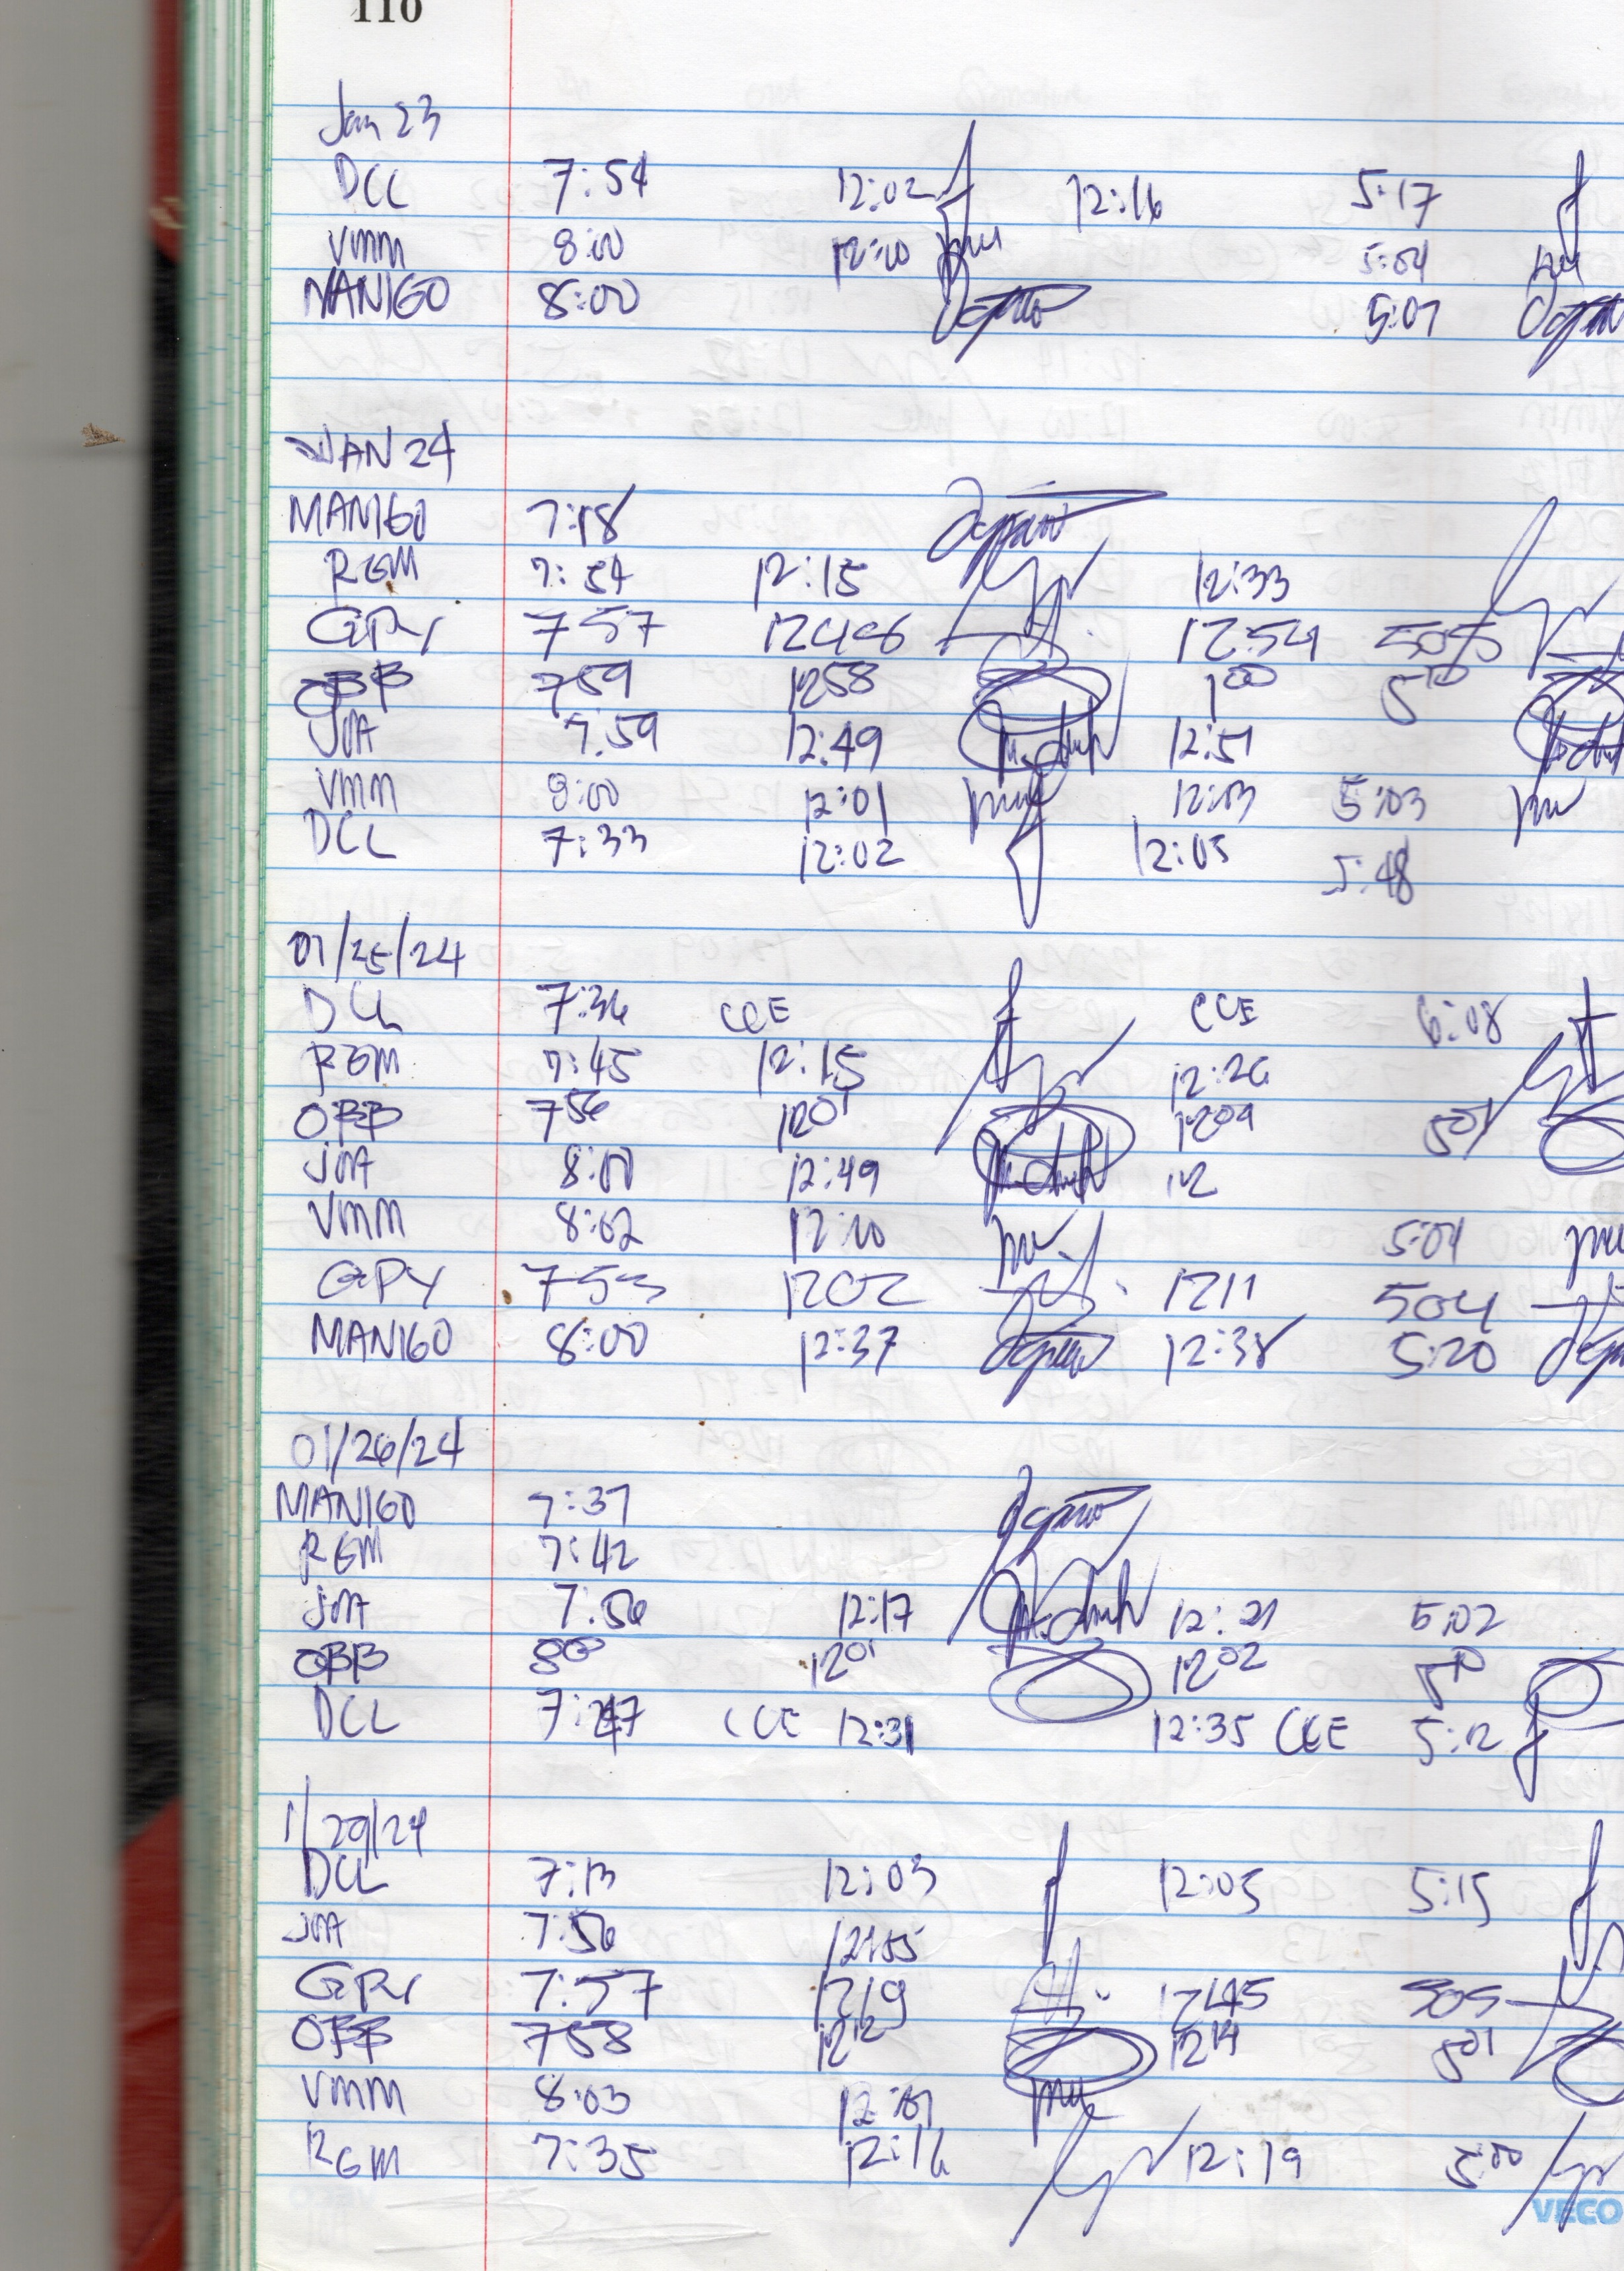 110
Jan 23
DCL 7:54 12:02 12:16 5:17
VMM 8:00 12:00 5:04
MANIGO 8:00 5:07
JAN 24
MANIGO 7:18
RGM 7:54 12:15 12:33
GPY 757 12446 1254 505
OBB 759 1258 100 510
JMA 7:59 12:49 12:51
VMM 8:00 12:01 12:03 5:03
DCL 7:33 12:02 12:05 5:48
01/25/24
DCL 7:36 CCE CCE 6:08
RGM 7:45 12:15 12:26
OBB 756 1201 1209 501
JMA 8:00 12:49 12
VMM 8:02 12:00 5:04
GPY 753 1202 1211 504
MANIGO 8:00 12:37 12:38 5:20
01/26/24
MANIGO 7:37
RGM 7:42
JMA 7:56 12:17 12:21 5:02
OBB 800 1201 1202 510
DCL CCE 12:31 12:35 CCE 5:12
1/29/24
DCL 7:13 12:03 12:05 5:15
JMA 7:56
GPY 7:57 1219 1245 505
OBB 758 1212 1214 501
VMM 8:03
RGM 7:35 12:16 12:19 5:00
VECO